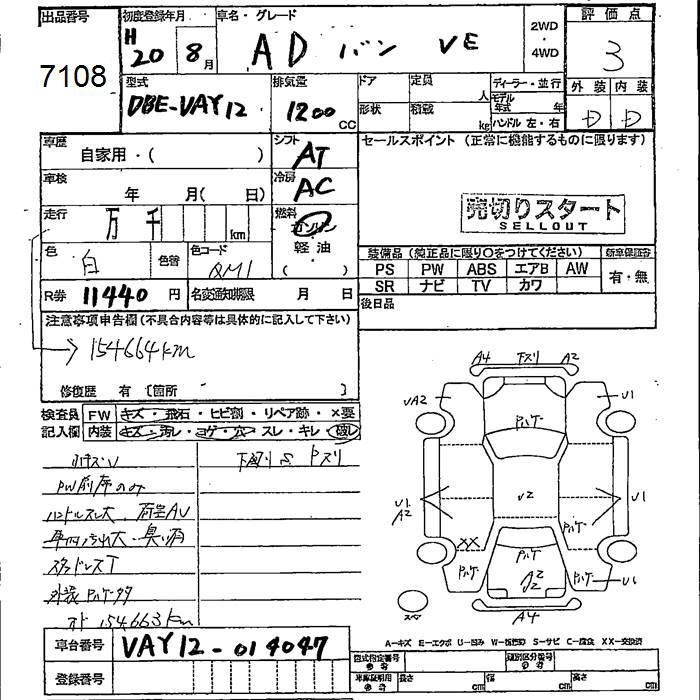 出品番号 初度登録年月 車名・グレード 2WD・4WD 評価点
7108 H20 8月 AD バン VE 3
型式 排気量 ドア 定員 人 ディーラー・並行 外装 内装
DBE-VAY12 1200 CC 形状 積載 kg モデル年式 年 ハンドル 左・右 D D
車歴 自家用・( ) シフト AT セールスポイント (正常に機能するものに限ります)
車検 年 月( 日) 冷房 AC
売切りスタート
SELLOUT
走行 万 千 km 燃料 ガソリン
軽油
( )
色 白 色替 色コード QM1
装備品 (純正品に限り○をつけてください) 新車保証書
PS PW ABS エアB AW 有・無
SR ナビ TV カワ
R券 11440 円 名変通知期限 月 日 後日品
注意事項申告欄(不具合内容等は具体的に記入して下さい)
→ 154664km
修復歴 有 [箇所 ]
検査員 FW キズ・飛石・ヒビ割・リペア跡・×要
記入欄 内装 キズ・汚レ・コゲ・穴・スレ・キレ・破レ
下廻り S Pズリ
PW前席のみ
ハンドルスレ大 荷室AU
車内汚れ大・臭い有
スタッドレスT
外装 Pハゲ多
オド 154663km
A4 下ズリ A2
UA2 Pハゲ U1
U1 A2 U2 U1
XX Pハゲ
Pハゲ Pハゲ U1
A2 U2
スペア A4
A-キズ E-エクボ U-凹み W-板金跡 S-サビ C-腐食 XX-交換済
車台番号 VAY12-014047
登録番号
型式指定番号 参考 類別区分番号 参考
車庫証明用 参考 長さ cm 幅 cm 高さ cm